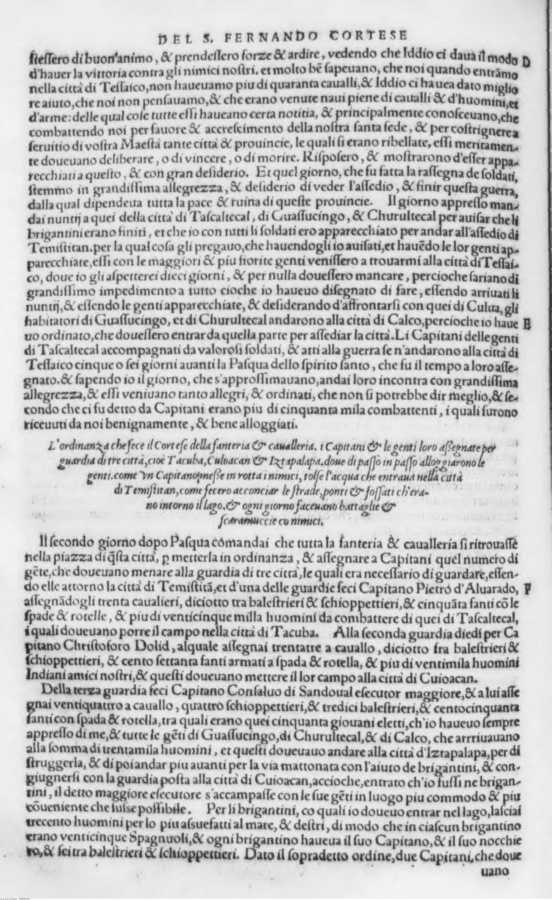 DEL S. FERNANDO CORTESE
stessero di buon'animo, & prendessero forze & ardire, vedendo che Iddio ci daua il modo D
d'hauer la vittoria contra gli nimici nostri. et molto bẽ sapeuano, che noi quando entrãmo
nella città di Tessaico, non haueuamo piu di quaranta caualli, & Iddio ci hauea dato miglio
re aiuto, che noi non pensauamo, & che erano venute naui piene di caualli & d'huomini, et
d'arme: delle qual cose tutte essi haueano certa notitia, & principalmente conosceuano, che
combattendo noi per fauore & accrescimento della nostra santa fede, & per costrignere a
seruitio di vostra Maestà tante città & prouincie, le quali si erano ribellate, essi meritamen-
te doueuano deliberare, o di vincere, o di morire. Risposero, & mostrarono d'esser appa-
recchiati a questo, & con gran desiderio. Et quel giorno, che fu fatta la rassegna de soldati,
stemmo in grandissima allegrezza, & desiderio di veder l'assedio, & finir questa guerra,
dalla qual dipendeua tutta la pace & ruina di queste prouincie. Il giorno appresso man-
dai nuntij a quei della città di Tascaltecal, di Guassucingo, & Churultecal per auisar che li
brigantini erano finiti, et che io con tutti li soldati ero apparecchiato per andar all'assedio di
Temistitan. per la qual cosa gli pregauo, che hauendogli io auisati, et hauẽdo le lor genti ap-
parecchiate, essi con le maggiori & piu fiorite genti venissero a trouarmi alla città di Tessai-
co, doue io gli aspetterei dieci giorni, & per nulla douessero mancare, percioche sariano di
grandissimo impedimento a tutto cioche io haueuo disegnato di fare, essendo arriuati li
nuntij, & essendo le genti apparecchiate, & desiderando d'affrontarsi con quei di Culua, gli
habitatori di Guassucingo, et di Churultecal andarono alla città di Calco, percioche io haue E
uo ordinato, che douessero entrar da quella parte per assediar la città. Li Capitani delle genti
di Tascaltecal accompagnati da valorosi soldati, & atti alla guerra se n'andarono alla città di
Tessaico cinque o sei giorni auanti la Pasqua dello spirito santo, che fu il tempo a loro asse-
gnato. & sapendo io il giorno, che s'approssimauano, andai loro incontra con grandissima
allegrezza, & essi veniuano tanto allegri, & ordinati, che non si potrebbe dir meglio, & se-
condo che ci fu detto da Capitani erano piu di cinquanta mila combattenti, i quali furono
riceuuti da noi benignamente, & bene alloggiati.
L'ordinanza che fece il Cortese della fanteria & caualleria. i Capitani & le genti loro assegnate per
guardia di tre città, cioè Tacuba, Culoacan & Iztapalapa. doue di passo in passo alloggiarono le
genti. come vn Capitano messe in rotta i nimici, tolse l'acqua che entraua nella città
di Temistitan, come fecero acconciar le strade, ponti & fossati ch'era-
no intorno il lago. & ogni giorno faceuano battaglie &
scaramuccie co nimici.
Il secondo giorno dopo Pasqua cõmandai che tutta la fanteria & caualleria si ritrouasse
nella piazza di q̃sta città, ꝑ metterla in ordinanza, & assegnare a Capitani quel numero di
gẽte, che doueuano menare alla guardia di tre città, le quali era necessario di guardare, essen-
do elle attorno la città di Temistitã, et d'una delle guardie feci Capitano Pietro d'Aluarado, F
assegnãdogli trenta caualieri, diciotto tra balestrieri & schioppettieri, & cinquãta fanti cõ le
spade & rotelle, & piu di venticinque milla huomini da combattere di quei di Tascaltecal,
i quali doueuano porre il campo nella città di Tacuba. Alla seconda guardia diedi per Ca
pitano Christoforo Dolid, alquale assegnai trentatre a cauallo, diciotto fra balestrieri &
schioppettieri, & cento settanta fanti armati a spada & rotella, & piu di ventimila huomini
Indiani amici nostri, & questi doueuano mettere il lor campo alla città di Cuioacan.
Della terza guardia feci Capitano Consaluo di Sandoual esecutor maggiore, & a lui asse
gnai ventiquattro a cauallo, quattro schioppettieri, & tredici balestrieri, & centocinquanta
fanti con spada & rotella, tra quali erano quei cinquanta giouani eletti, ch'io haueuo sempre
appresso di me, & tutte le gẽti di Guassucingo, di Churultecal, & di Calco, che arriuauano
alla somma di trentamila huomini, et questi doueuauo andare alla città d'Iztapalapa, per di
struggerla, & di poi andar piu auanti per la via mattonata con l'aiuto de brigantini, & con-
giugnersi con la guardia posta alla città di Cuioacan, accioche, entrato ch'io fussi ne brigan-
tini, il detto maggiore esecutore s'accampasse con le sue gẽti in luogo piu commodo & piu
cõueniente che fusse possibile. Per li brigantini, co quali io doueuo entrar nel lago, lasciai
trecento huomini per lo piu assuefatti al mare, & destri, di modo che in ciascun brigantino
erano venticinque Spagnuoli, & ogni brigantino haueua il suo Capitano, & il suo nocchie
ro, & sei tra balestrieri & schioppettieri. Dato il sopradetto ordine, due Capitani, che doue
uano